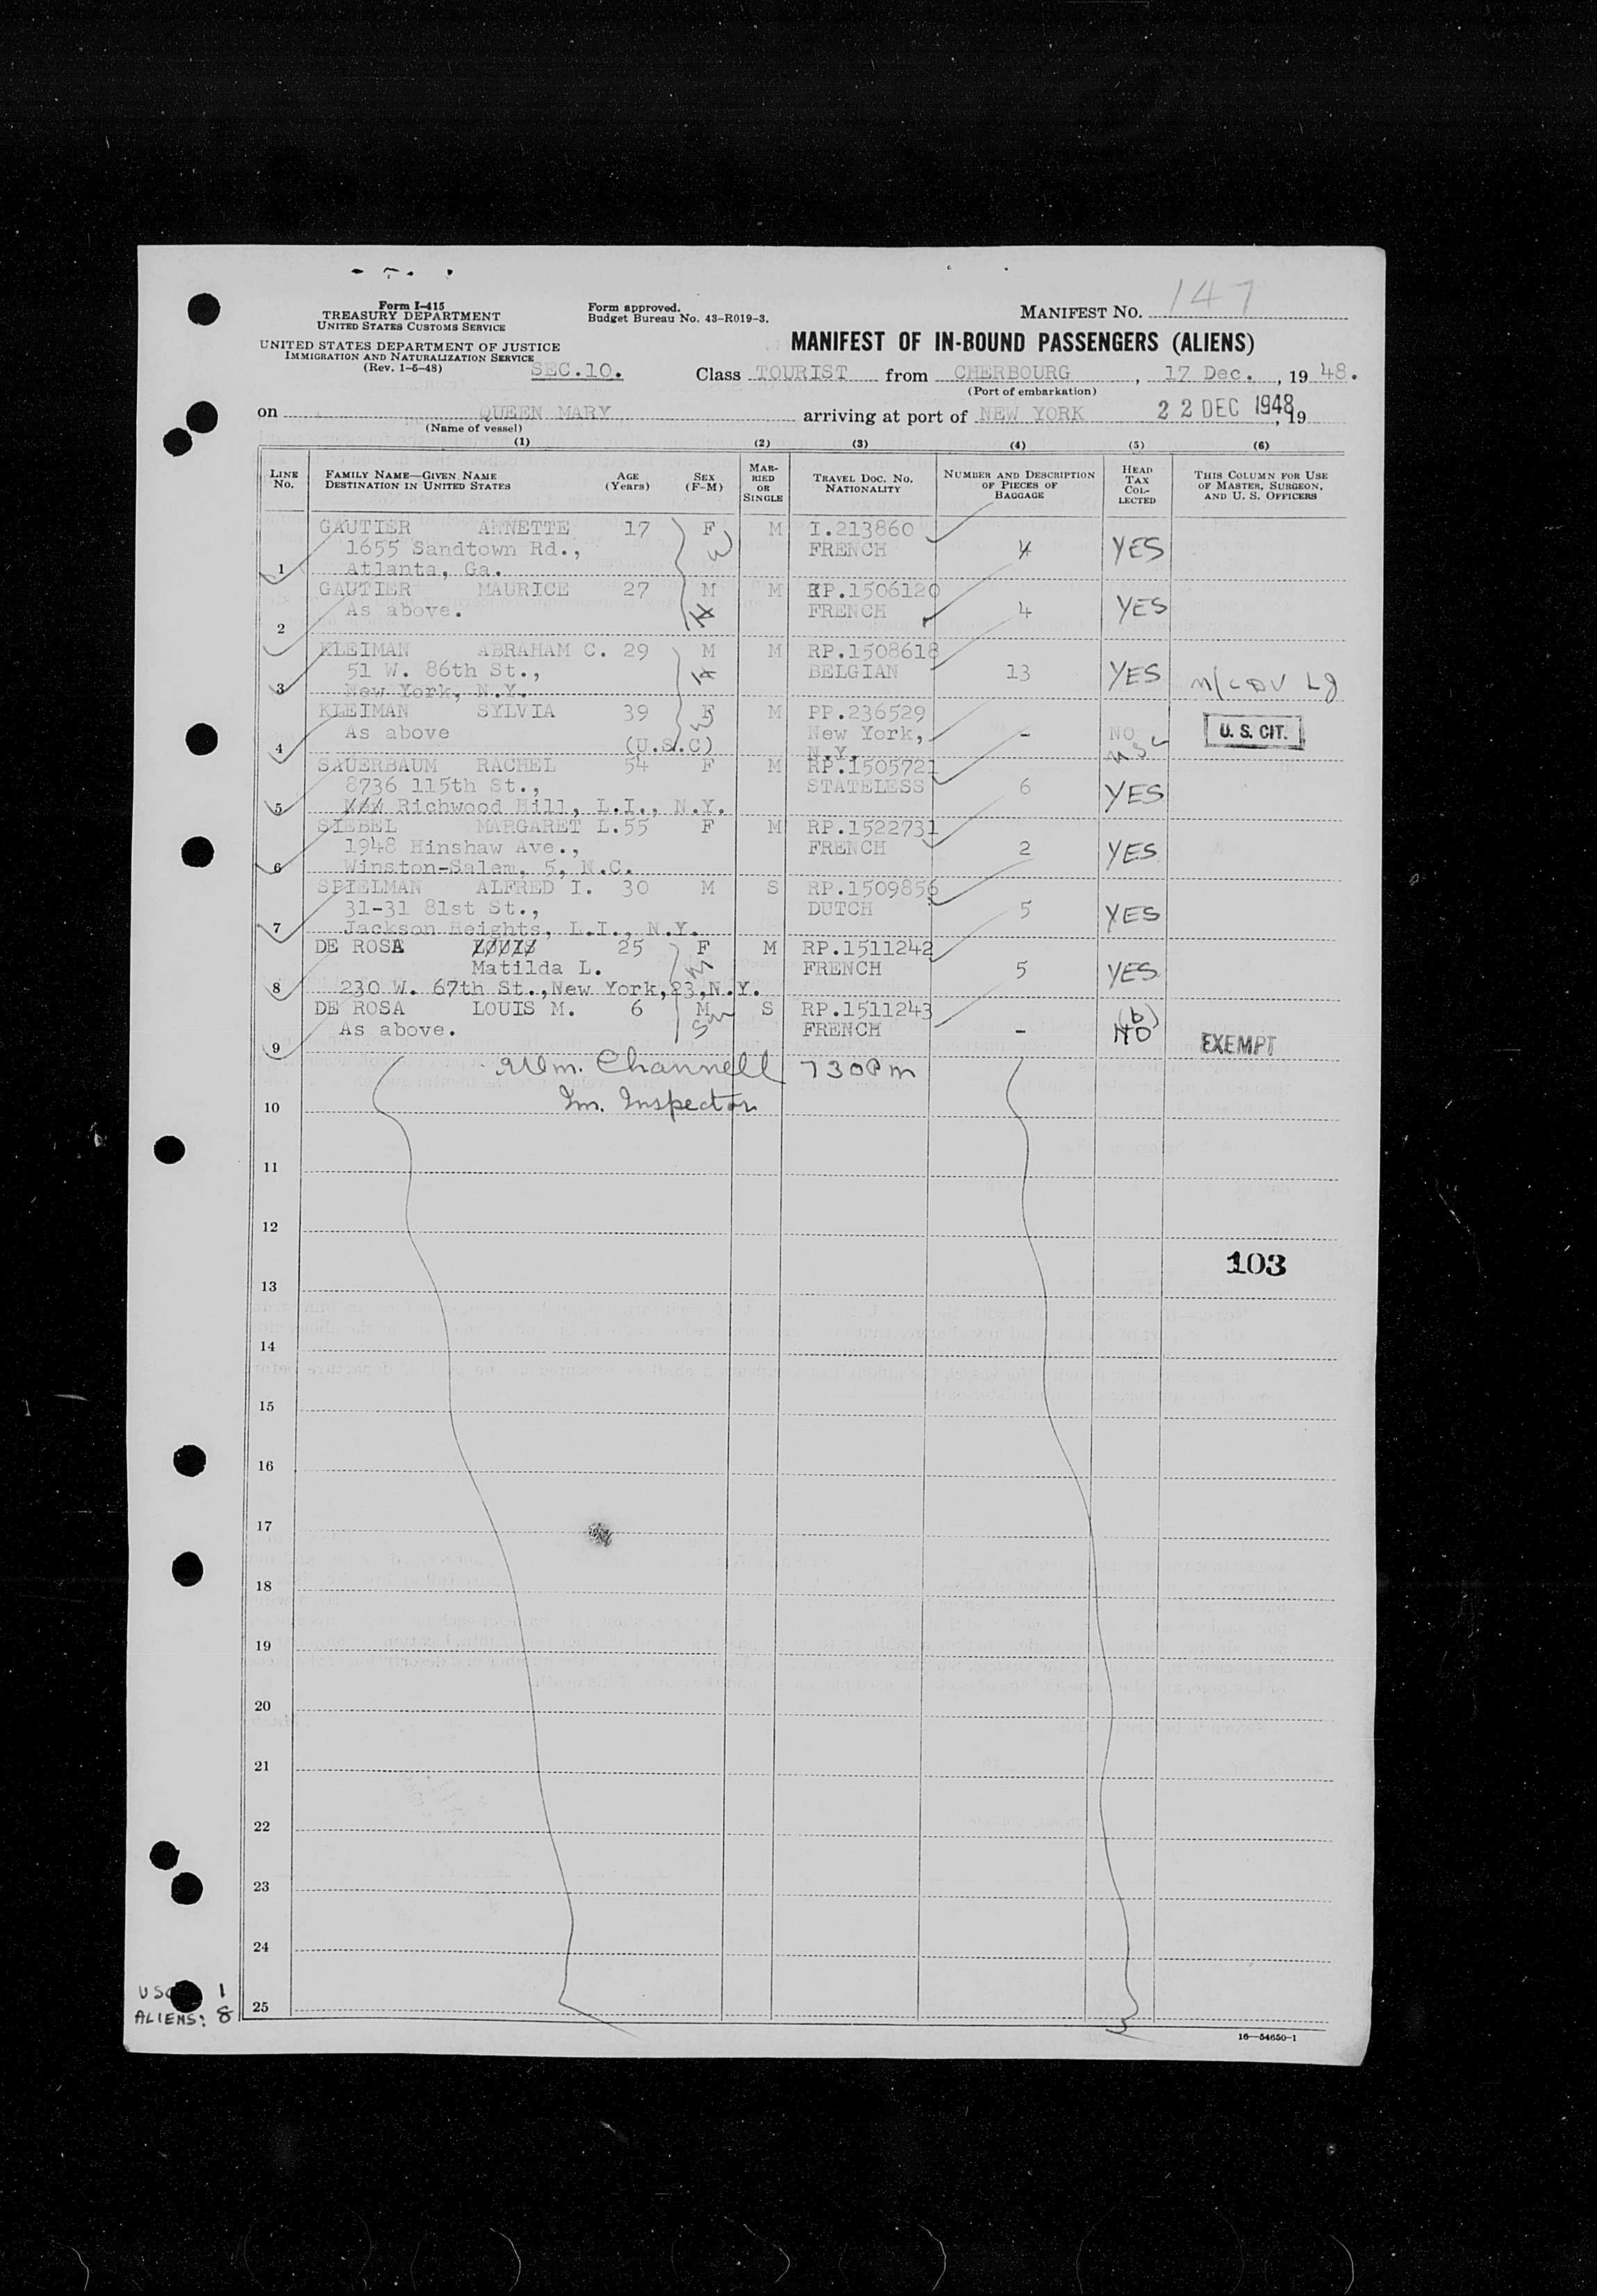 Form I-415
TREASURY DEPARTMENT
UNITED STATES CUSTOMS SERVICE
Form approved.
Budget Bureau No. 43-R019-3.
MANIFEST No. 147
UNITED STATES DEPARTMENT OF JUSTICE
IMMIGRATION AND NATURALIZATION SERVICE
(Rev. 1-5-48)
SEC.10.
MANIFEST OF IN-BOUND PASSENGERS (ALIENS)
Class TOURIST from CHERBOURG, 17 Dec., 1948.
(Port of embarkation)
on QUEEN MARY arriving at port of NEW YORK 22 DEC 1948, 19
(Name of vessel)
(1) (2) (3) (4) (5) (6)
LINE No. FAMILY NAME—GIVEN NAME DESTINATION IN UNITED STATES AGE (Years) SEX (F-M) MARRIED OR SINGLE TRAVEL DOC. NO. NATIONALITY NUMBER AND DESCRIPTION OF PIECES OF BAGGAGE HEAD TAX COLLECTED THIS COLUMN FOR USE OF MASTER, SURGEON, AND U. S. OFFICERS
GAUTIER ANNETTE 17 F M I.213860
1655 Sandtown Rd., W FRENCH 4 YES
1 Atlanta, Ga.
GAUTIER MAURICE 27 M M RP.1506120
As above. H FRENCH 4 YES
2
KLEIMAN ABRAHAM C. 29 M M RP.1508618
51 W. 86th St., H BELGIAN 13 YES
3 New York, N.Y.
KLEIMAN SYLVIA 39 F M PP.236529
As above W New York, - NO U. S. CIT.
4 (U.S.C) N.Y. USC
SAUERBAUM RACHEL 54 F M RP.1505721
8736 115th St., STATELESS 6 YES
5 New Richwood Hill, L.I., N.Y.
SIEBEL MARGARET L. 55 F M RP.1522731
1948 Hinshaw Ave., FRENCH 2 YES
6 Winston-Salem, 5, N.C.
SPIELMAN ALFRED I. 30 M S RP.1509856
31-31 81st St., DUTCH 5 YES
7 Jackson Heights, L.I., N.Y.
DE ROSA LOUIS 25 F M RP.1511242
Matilda L. M FRENCH 5 YES
8 230 W. 67th St., New York, 23, N.Y.
DE ROSA LOUIS M. 6 M S RP.1511243 (b)
As above. Son FRENCH - NO EXEMPT
9
Wm. Channell 730 PM
10 Im. Inspector
11
12
103
13
14
15
16
17
18
19
20
21
22
23
24
USC 1
ALIENS: 8
25
16—54650-1